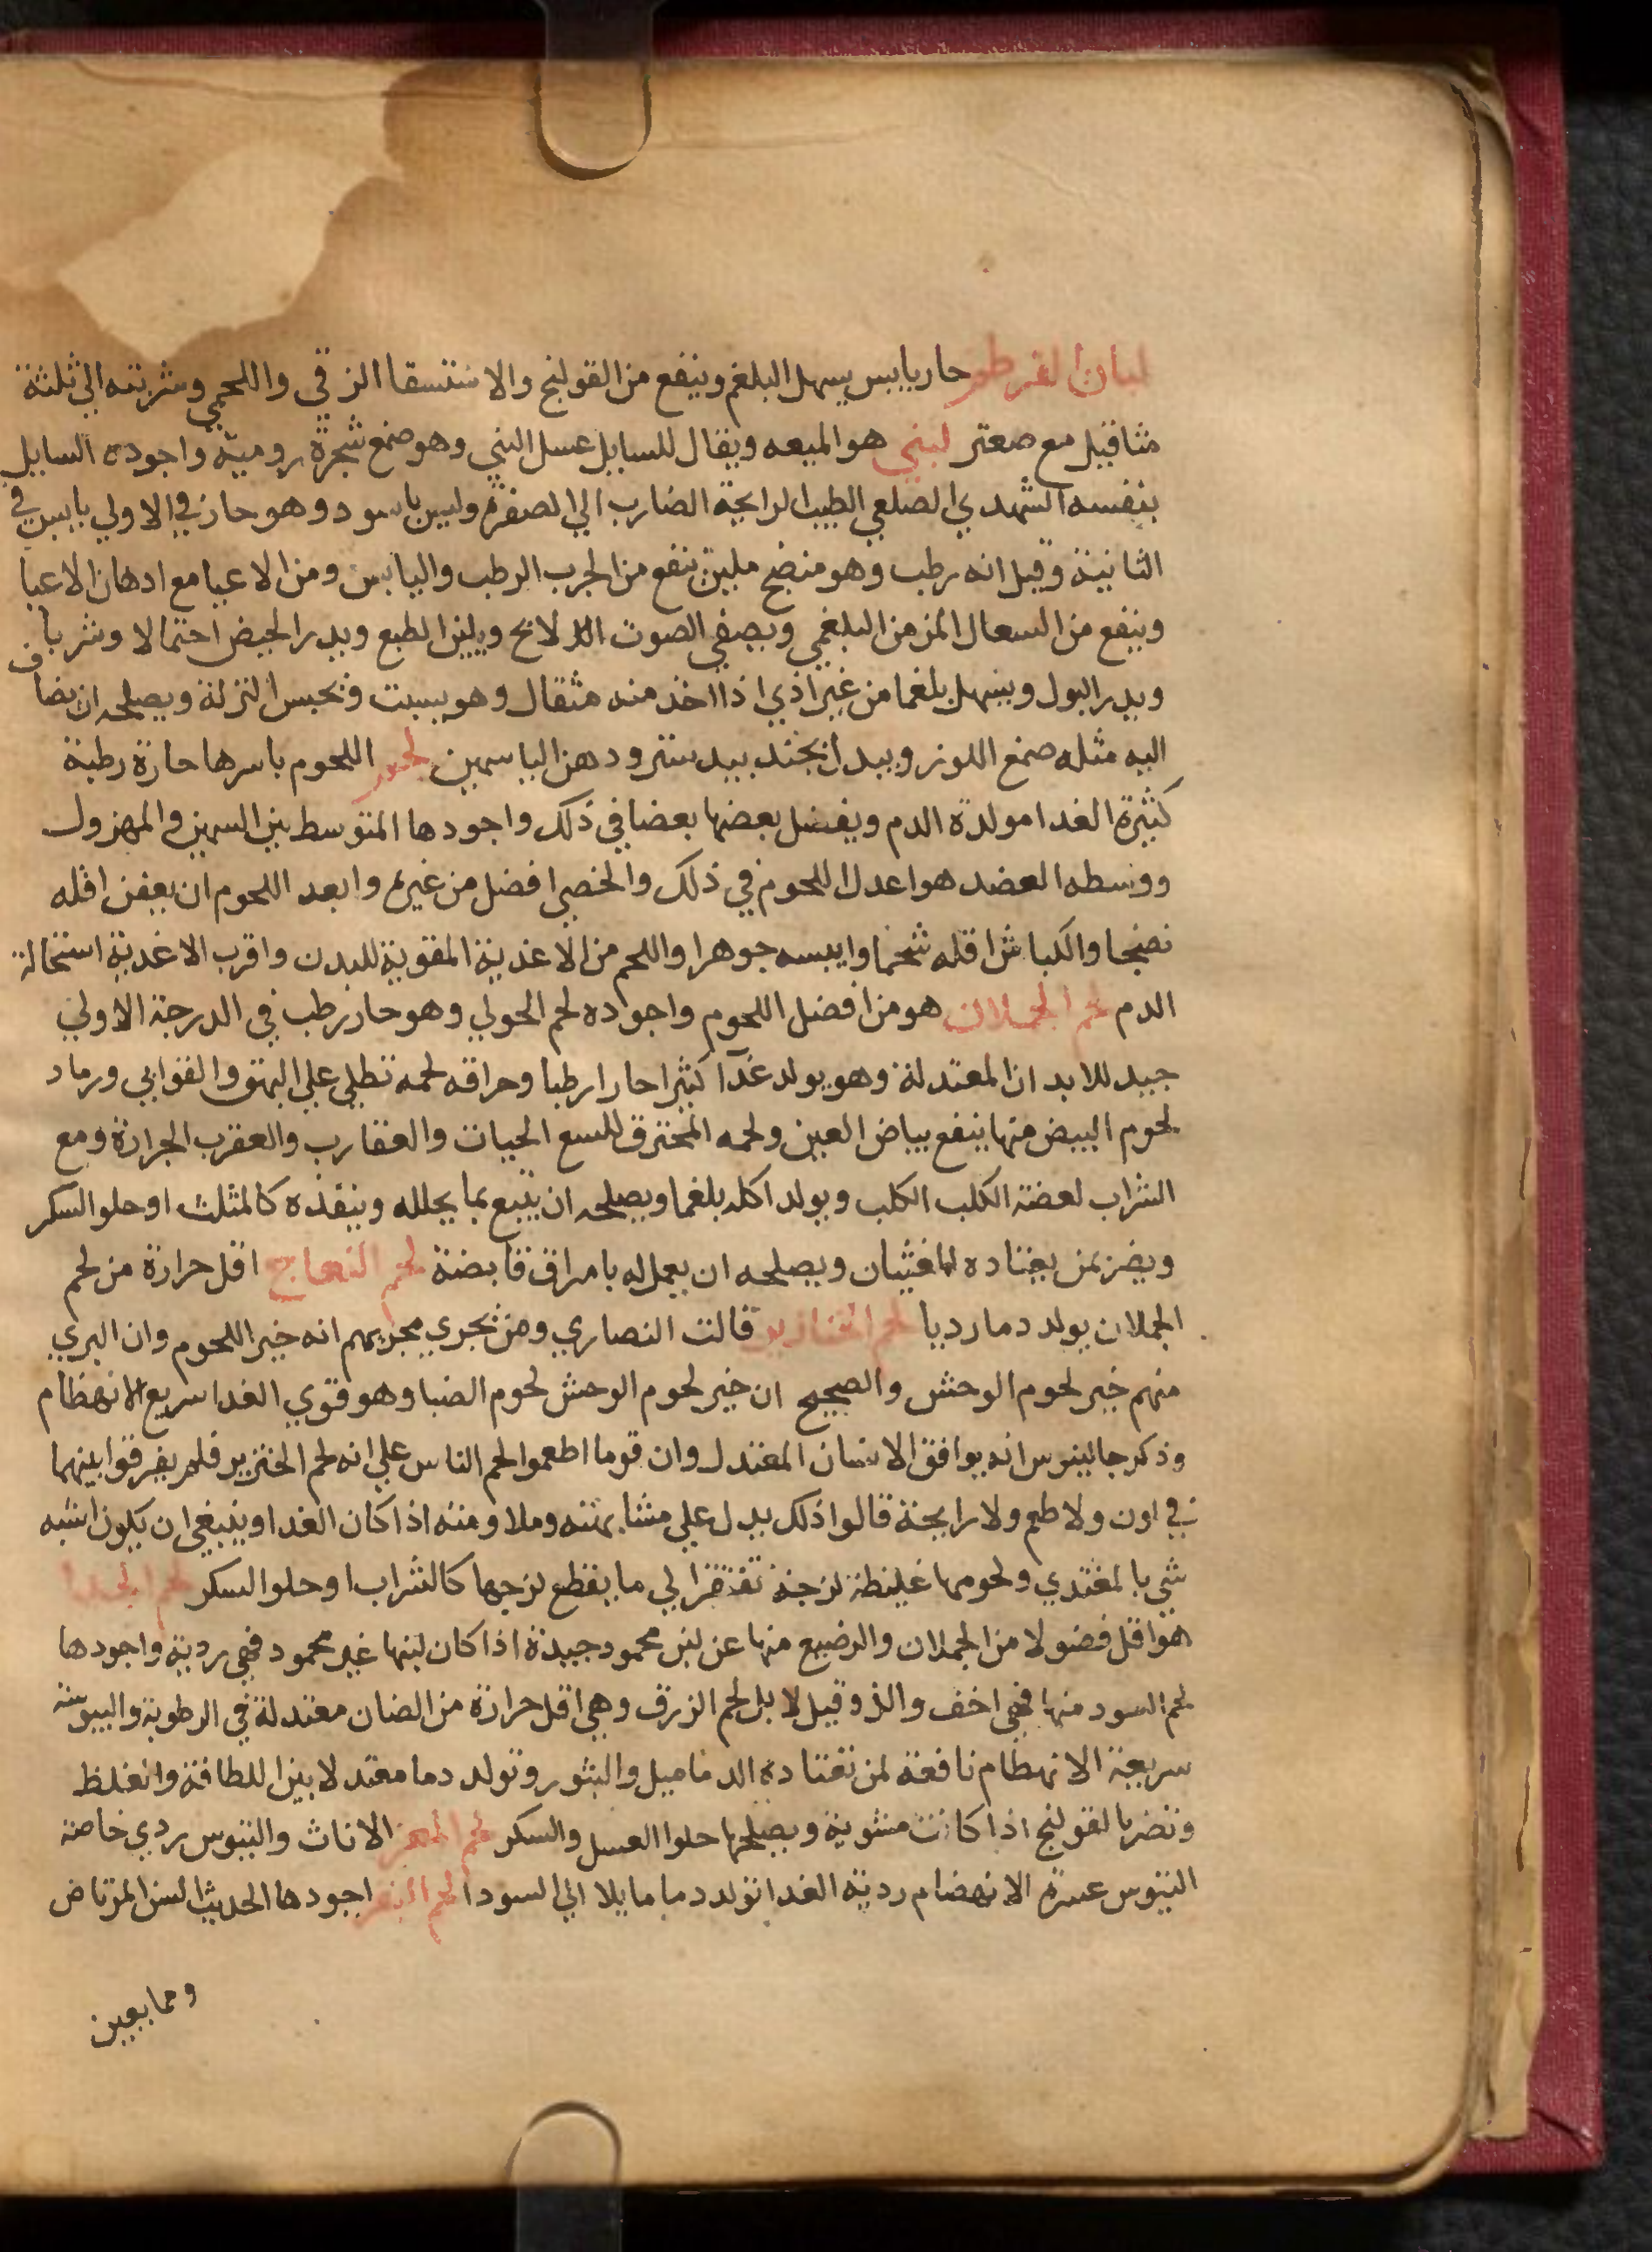 لبان القرطم حار يابس يسهل البلغم وينفع من القولنج والاستسقا الزقي واللحمي وشربته الي ثلثة
مثاقيل مع صعتر لبني هو الميعه ويقال للسايل عسل البني وهو صمغ شجرة رومية واجوده السايل
بنفسه الشهدي الصلعي الطيب الرايحة الضارب الي الصفرة وليس باسود وهو حار في الاولي يابس في
الثانية وقيل انه رطب وهو منضج ملين ينفع من الجرب الرطب واليابس ومن الاعيا مع ادهان الاعيا
وينفع من السعال المزمن البلغمي ويصفي الصوت الابح ويلين الطبع ويدر الحيض احتمالا وشربا
ويدر البول ويسهل بلغما من غير اذي اذا اخذ منه مثقال وهو يسبت ويحبس النزلة ويصلحه ان يضاف
اليه مثله صمغ اللوز وبيدل بجند بيدستر ودهن الياسمين لحوم اللحوم باسرها حارة رطبة
كثيرة الغدا مولدة الدم ويفضل بعضها بعضا في ذلك واجودها المتوسط بين السمين والمهزول
ووسطه العضد هو اعدل اللحوم في ذلك والخصي افضل من غيره وابعد اللحوم ان يعفن اقله
نضجا والكباش اقله شحما وايبسه جوهرا واللحم من الاغدية المقوية للبدن واقرب الاغدية استحالة
الدم لحم الحملان هو من افضل اللحوم واجوده لحم الحولي وهو حار رطب في الدرجة الاولي
جيد للابدان المعتدلة وهو يولد غدآ كثيرا حارا رطبا وحراقه لحمه تطلي علي البهق والقوابي ورماد
لحوم البيض منها ينفع بياض العين ولحمه المحترق للسع الحيات والعقارب والعقرب الجرارة ومع
الشراب لعضة الكلب الكلب ويولد اكله بلغما ويصلحه ان يتبع بما يحلله وينفذه كالمثلث او حلو السكر
ويضر بمن يعتاده الغثيان ويصلحه ان يعمل له بامراق قابضة لحم النعاج اقل حرارة من لحم
الحملان يولد دما رديا لحم الخنازير قالت النصاري ومن يجري مجريهم انه خير اللحوم وان البري
منهم خير لحوم الوحش والصحيح ان خير لحوم الوحش لحوم الضبا وهو قوي الغدا سريع الانهظام
وذكر جالينوس انه يوافق الانسان المعتدل وان قوما اطعموا لحم الناس علي انه لحم الخنزير فلم يفرقوا بينهما
في لون ولا طعم ولا رايحة قالوا ذلك يدل علي مشابهته وملاومته اذا كان الغدا وينبغي ان يكون اشبه
شي بالمغتدي ولحومها غليظة لزجة تفتقر الي ما يقطع لزجها كالشراب او حلو السكر لحم الجدا
هو اقل فضولا من الحملان والرضيع منها عن لبن محمود جيدة اذا كان لبنها غير محمود فهي ردية واجودها
لحم السود منها فهي اخف والذ وقيل لا بل لحم الزرق وهي اقل حرارة من الضان معتدلة في الرطوبة واليبوسة
سريعة الانهظام نافعة لمن تعتاده الدماميل والبثور وتولد دما معتدلا بين اللطافة والغلظ
وتضر بالقولنج اذا كانت مشوية ويصلحها حلوا العسل والسكر لحم المعز الاناث والتيوس ردي خاصة
التيوس عسرة الانهضام ردية الغدا تولد دما مايلا الي السودا لحم البقر اجودها الحديث السن المرتاض
ومما يعين